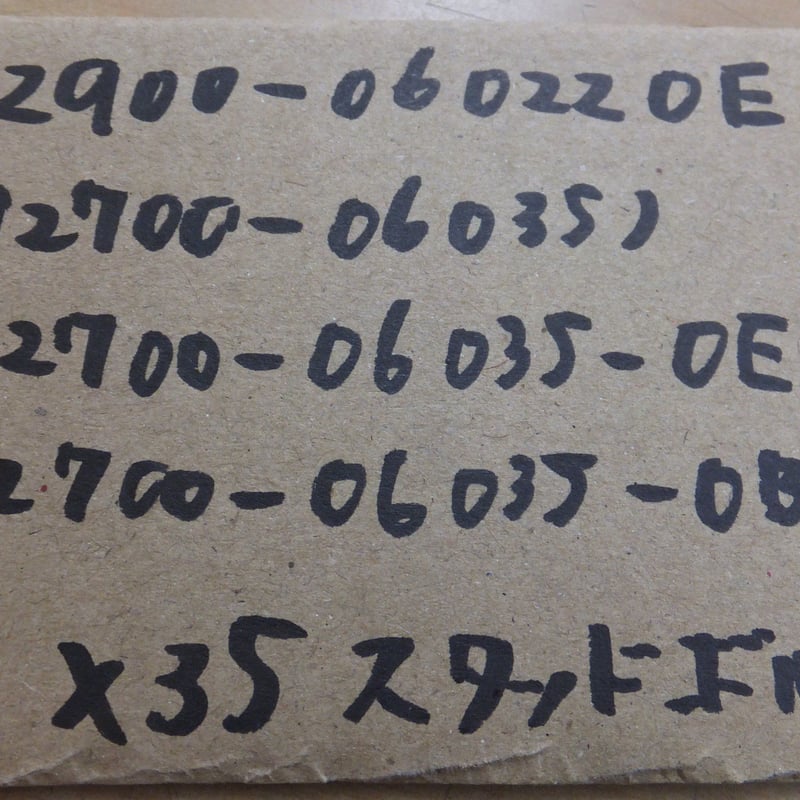 2900-06022 0E
2700-06035)
2700-06035-0E
2700-06035-0
X35 スタッド